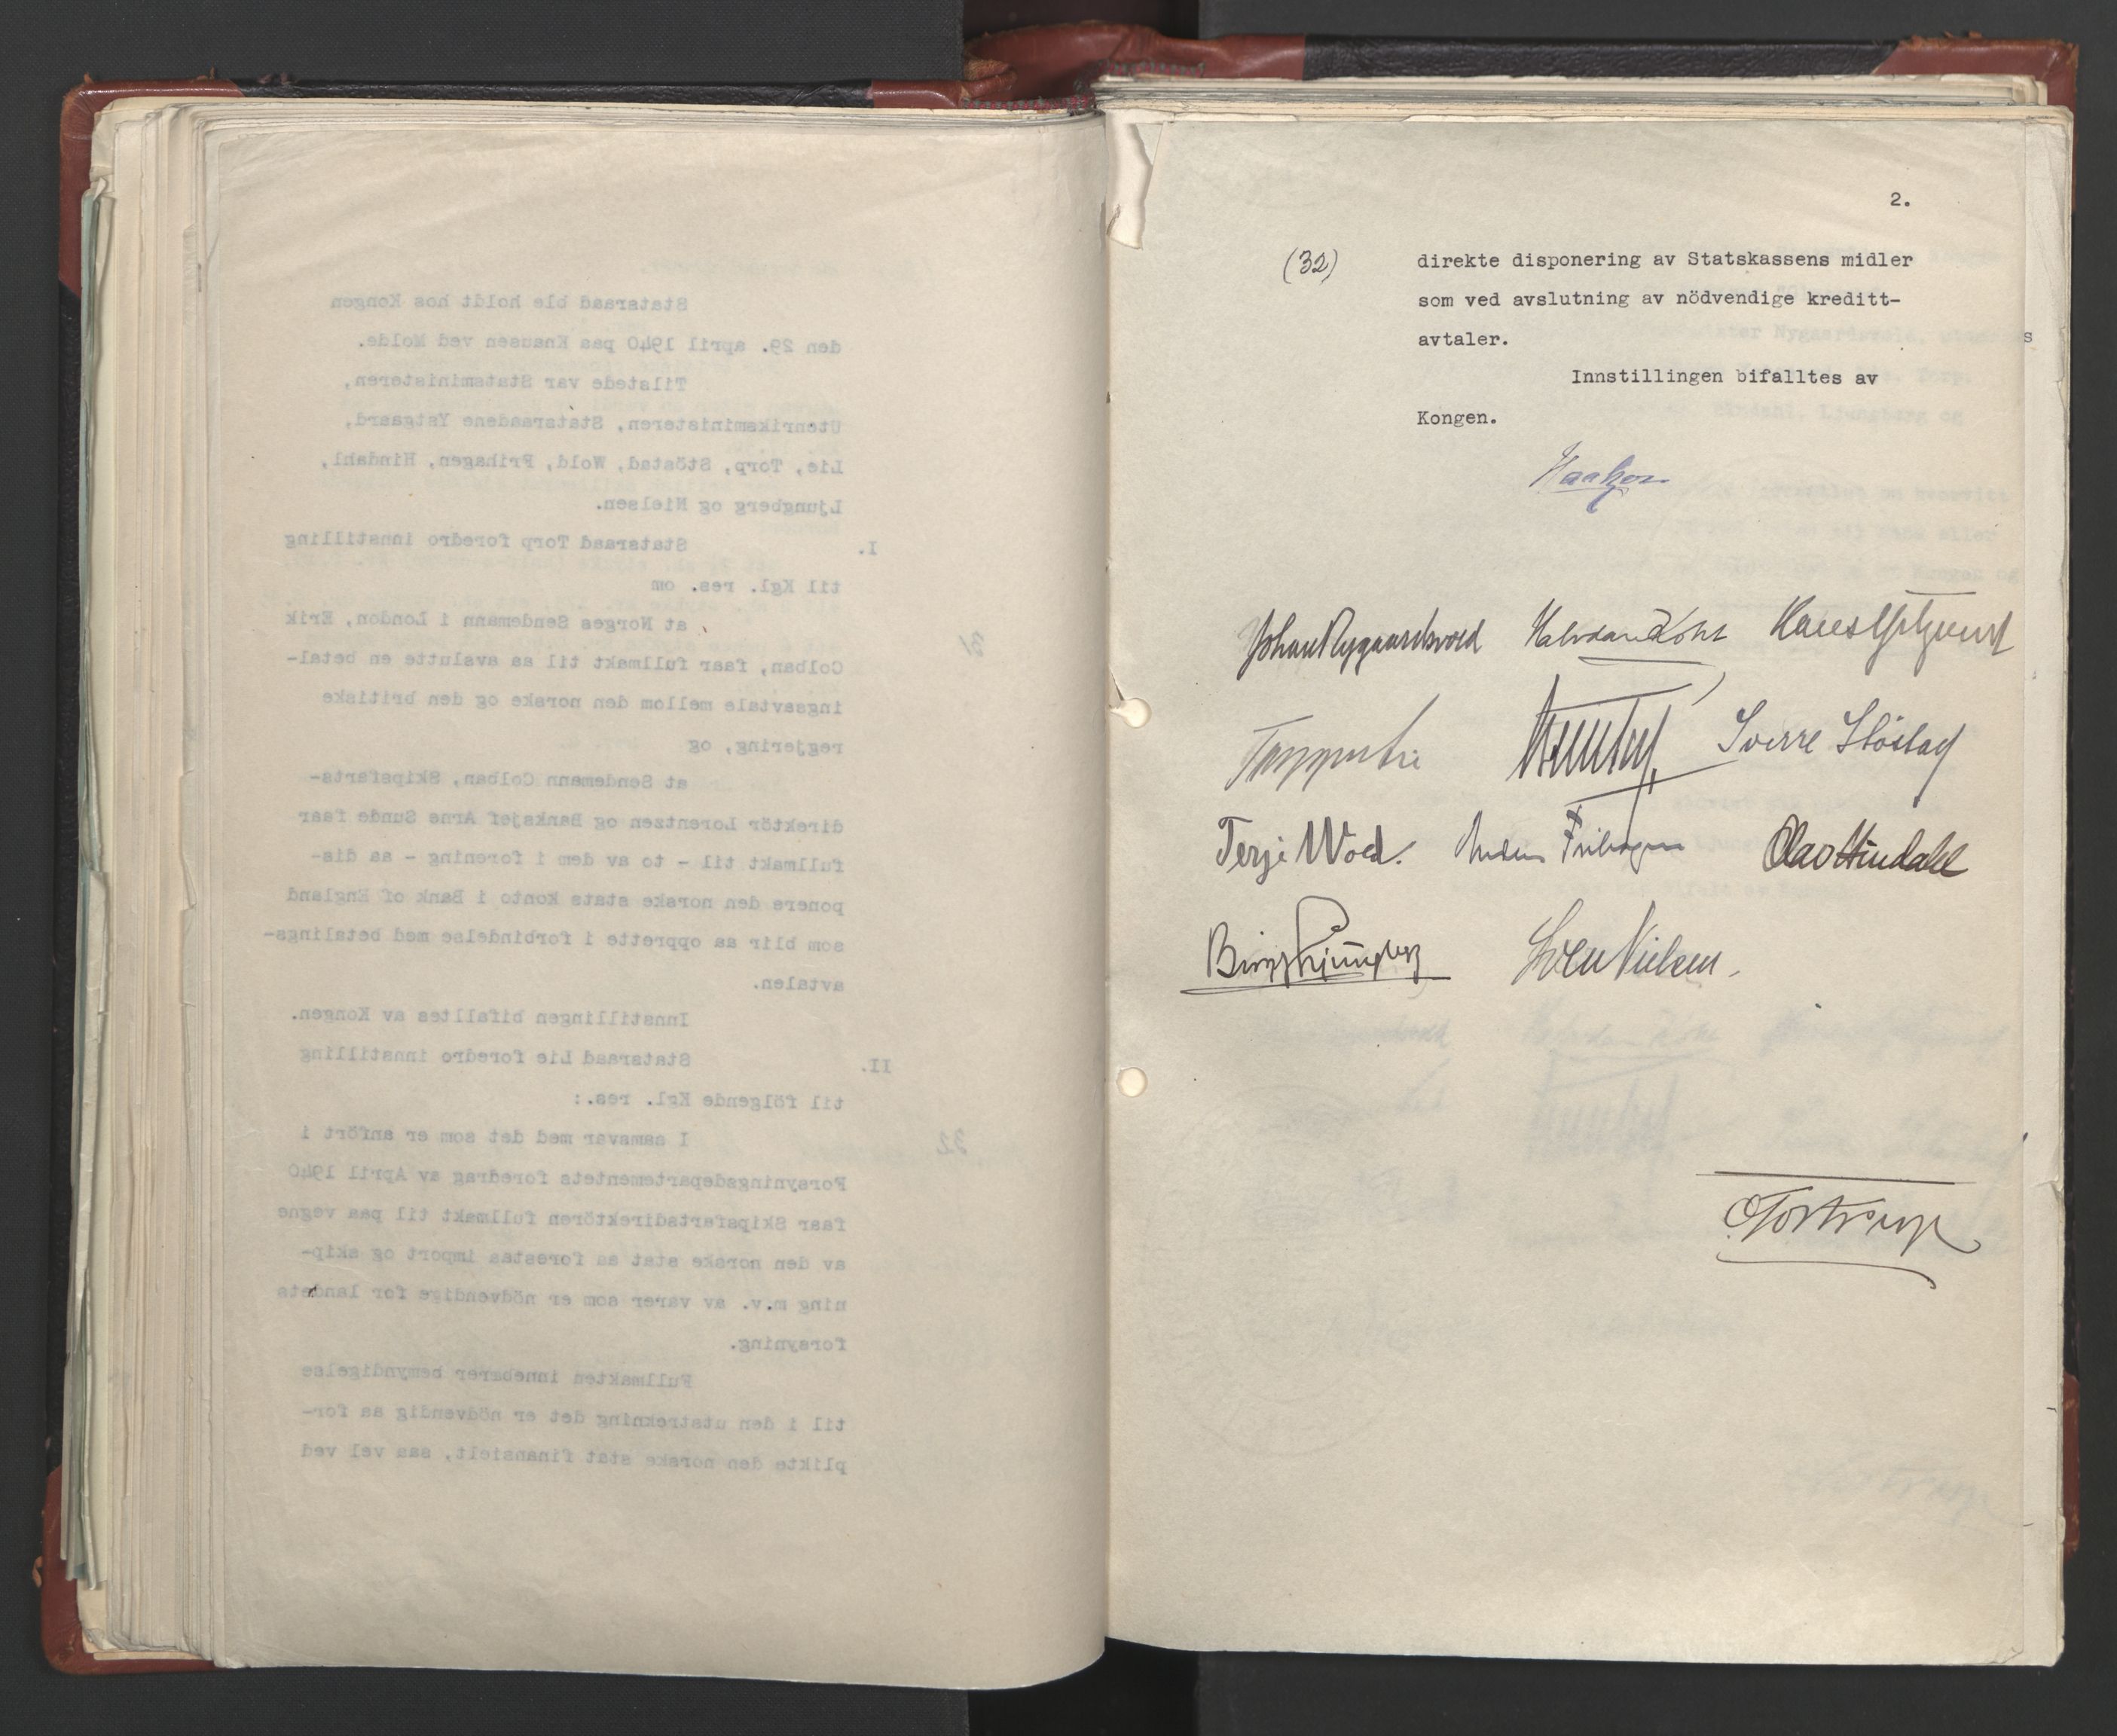 Statsraad ble holdt hos Kongen
den 29. april 1940 paa Knausen ved Molde.
Tilstede var Statsministeren,
Utenriksministeren, Statsraadene Ystgaard,
Lie, Torp, Stöstad, Wold, Frihagen, Hindahl,
Ljungberg og Nielsen.
I. Statsraad Torp foredro innstilling
til Kgl. res. om
31 at Norges Sendemann i London, Erik
Colban, faar fullmakt til aa avslutte en betal-
ingsavtale mellom den norske og den britiske
regjering, og
at Sendemann Colban, Skipsfarts-
direktör Lorentzen og Banksjef Arne Sunde faar
fullmakt til - to av dem i forening - aa dis-
ponere den norske stats konto i Bank of England
som blir aa opprette i forbindelse med betalings-
avtalen.
Innstillingen bifalltes av Kongen.
II. Statsraad Lie foredro innstilling
til fölgende Kgl. res.:
32 I samsvar med det som er anfört i
Forsyningsdepartementets foredrag av April 1940
faar Skipsfartsdirektören fullmakt til paa vegne
av den norske stat aa forestaa import og skip-
ning m.v. av varer som er nödvendige for landets
forsyning.
Fullmakten innebærer bemyndigelse
til i den utstrekning det er nödvendig aa for-
plikte den norske stat finansielt, saa vel ved
2.
(32) direkte disponering av Statskassens midler
som ved avslutning av nödvendige kreditt-
avtaler.
Innstillingen bifalltes av
Kongen.
Haakon
Johan Nygaardsvold Halvdan Koht
Sverre Stöstad
Terje Wold. Anders Frihagen Olav Hindahl
Birger Ljungberg Sven Nielsen.
C Tostrup